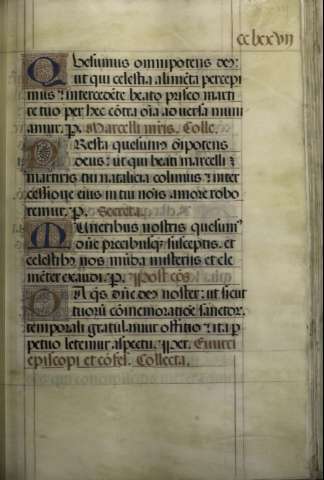 cclxxvii
Quesumus omnipotens deꝰ:
ut qui celestia alimēta percepi
mus ⁊ intercedēte beato prisco marti
re tuo per hec cōtra oīa aduersa muni
amur. p. Marcelli mris. Colle.
Presta quesumꝰ oīpotens
deus: ut qui beati marcelli
martiris tui natalicia colimus ⁊ inter
cessione eius in tui noīs amore robo
remur. p. Secreta.
Muneribus nostris quesumꝰ
dñe precibusqꝫ susceptis. et
celestibꝰ nos mūda misteriis et cle
mēter exaudi. p. Post cōs
qs dñe deꝰ noster: ut sicut
tuoꝝ cōmemoratiōe sanctoꝝ
temporali gratulamur offitio ⁊ ita ꝑ
petuo letemur aspectu. Per.
episcopi et cōfes. Collecta.